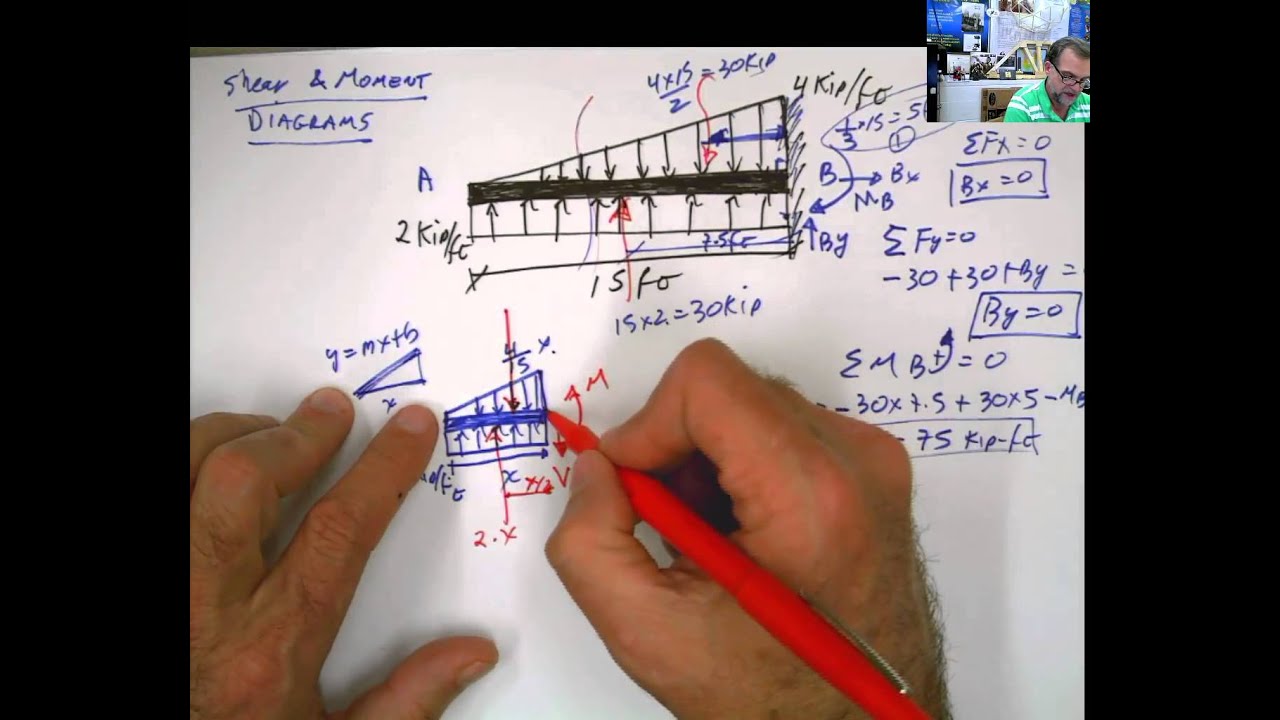 Shear & MOMENT
DIAGRAMS
4x15 = 30Kip
2
4 Kip/ft
1/3 x15 = 5
1
A
B
Bx
MB
By
2 Kip/ft
7.5ft
15 ft
15x2 = 30Kip
ΣFx = 0
Bx = 0
ΣFy=0
-30+30+By =
By = 0
ΣMB+ = 0
-30x7.5 + 30x5 -MB
75 Kip-ft
y=mx+b
x
4/15 x.
M
V
/ft
x
x/2
2.x